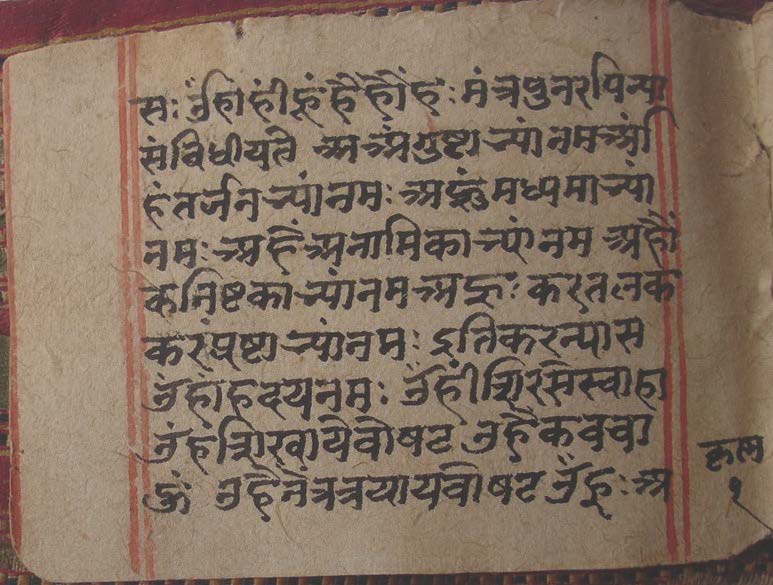 सः ॐह्रां हीं ह्रूं हैं ह्रौं हः मंत्रपुनरपिन्या
संविधीयते अअंगुष्टाभ्यांनमअं
हंतर्जनभ्यांनमः अह्रूंमध्यमाभ्यां
नमः अहैंअनामिकाभ्यांनम अहौं
कनिष्टकाभ्यांनमअह्रः करतलक
करंपृष्टाभ्यांनमः इतिकरन्यास
ॐहांहृदयनमः ॐहींशिरसिस्वाहा
ॐहंशिखायैवोषट ॐहैकवचा
ॐहैनेत्रत्रयायवोषट ॐह्रः अ
कल
१